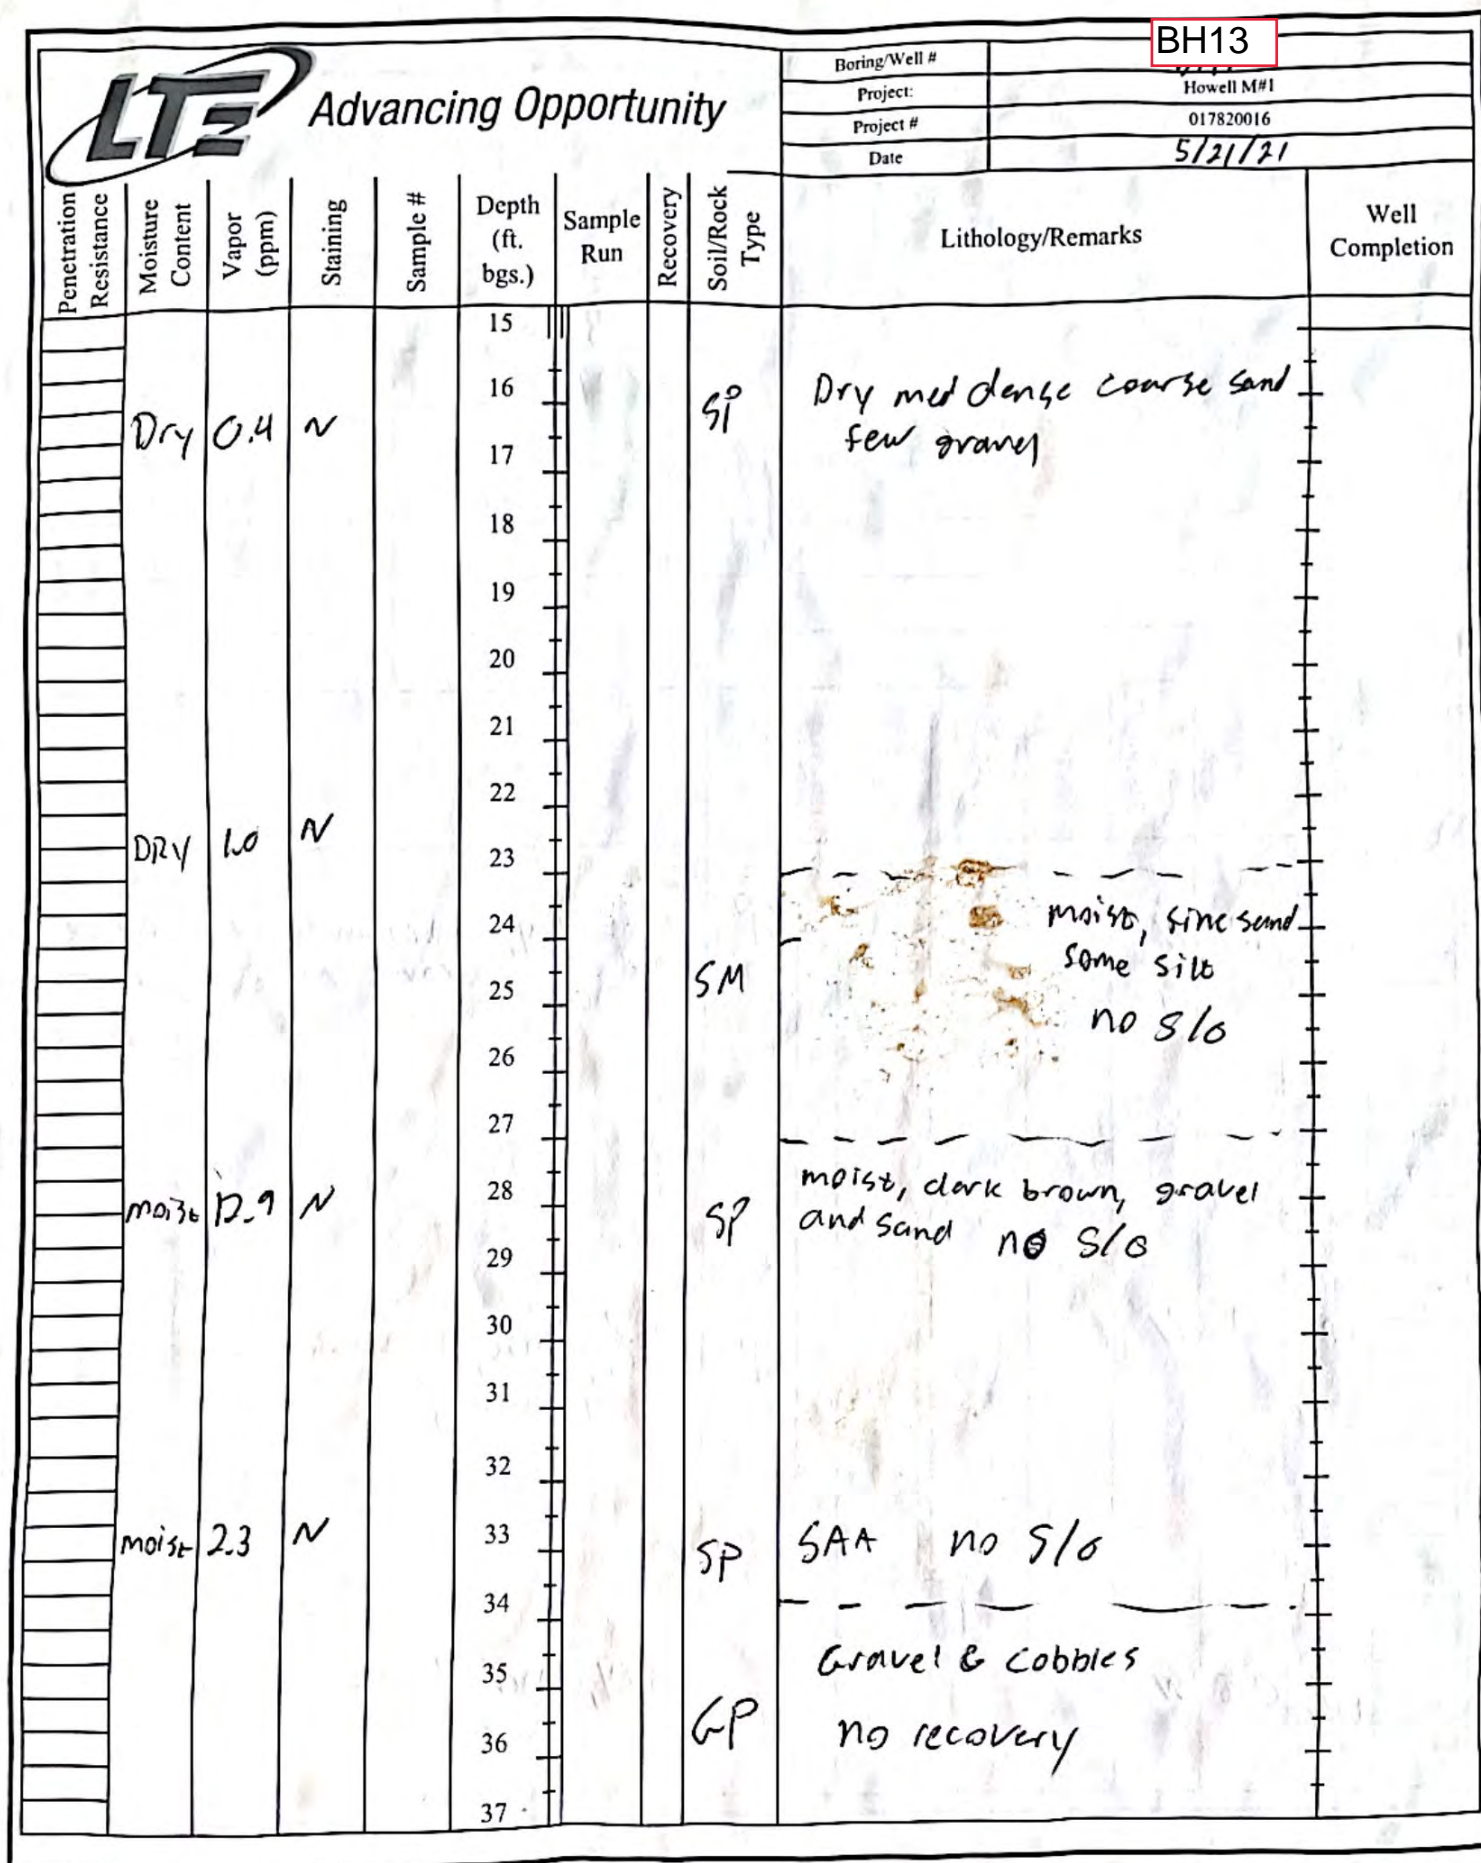 BH13
LTE Advancing Opportunity
Boring/Well #
Project: Howell M#1
Project # 017820016
Date 5/21/21
Penetration Resistance
Moisture Content
Vapor (ppm)
Staining
Sample #
Depth (ft. bgs.)
Sample Run
Recovery
Soil/Rock Type
Lithology/Remarks
Well Completion
15
16 SP Dry med dense coarse sand
Dry 0.4 N few gravel
17
18
19
20
21
22
DRY 1.0 N
23
24 moist, fine sand
SM some silt
25 no S/O
26
27
28 moist, dark brown, gravel
moist 12.9 N SP and sand no S/O
29
30
31
32
33
moist 2.3 N SP SAA no S/O
34
Gravel & cobbles
35
GP no recovery
36
37